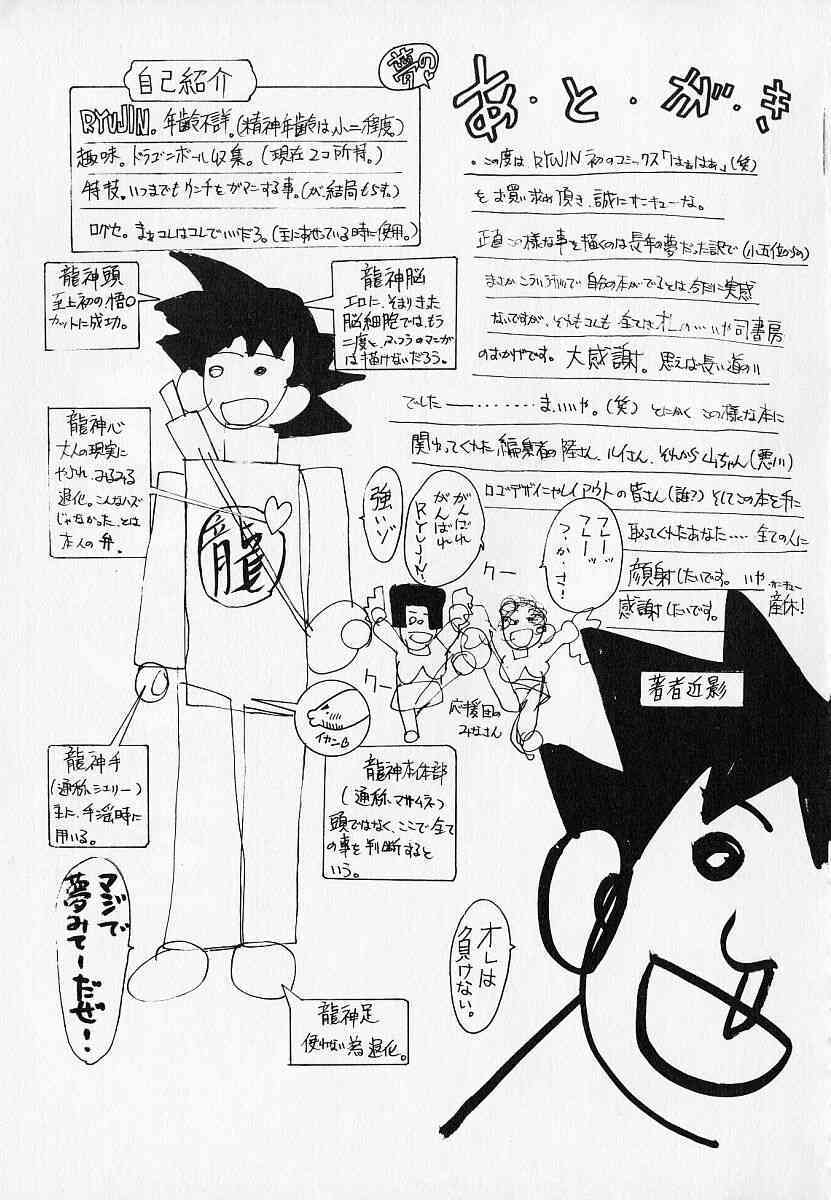 夢の♥
あ・と・が・き
自己紹介
RYUJIN。年齢不詳。(精神年齢は小二程度)
趣味。ドラゴンボール収集。(現在2コ所持。)
特技。いつまでもウンチをガマンする事。(が結局もらす。)
口グセ。まぁコレはコレでいいだろ。(主にあせっている時に使用。)
・この度はRYUJIN初のコミックス「はぁはぁ」(笑)
をお買い求め頂き、誠にサンキューな。
正直この様な事を描くのは長年の夢だった訳で(小五位からの)
まさかこういう形で自分の本がでるとは今だに実感
ないですが、それもコレも全てはオレの…いや司書房
のおかげです。大感謝。思えば長い道のり
でした――………ま、いいや。(笑)とにかくこの様な本に
関わってくれた編集者の陸さん、ルイさん、それから山ちゃん(悪川)
ロゴデザインやレイアウトの皆さん(誰?)そしてこの本を手に
取ってくれたあなた……全ての人に
顔射したいです。いや
サンキュー
産休!
感謝したいです。
龍神頭
至上初の悟〇
カットに成功。
龍神脳
エロに、そまりきた
脳細胞では、もう
二度と、ふつうのマンガ
は描けないだろう。
龍神心
大人の現実に
やぶれ、みるみる
退化。こんなハズ
じゃなかった、とは
本人の弁。
龍
強いゾ
がんばれ
がんばれ
RYUJIN!
フレーッ
フレーッ
?か・さ!
クー
クー
応援団の
みなさん
著者近影
イカンよ
龍神手
(通称、シェリー)
主に、手淫時に
用いる。
龍神本体部
(通称、マサムネ)
頭ではなく、ここで全て
の事を判断すると
いう。
マジで
夢みてーだぜ!
オレは
負けない。
龍神足
使わない為退化。